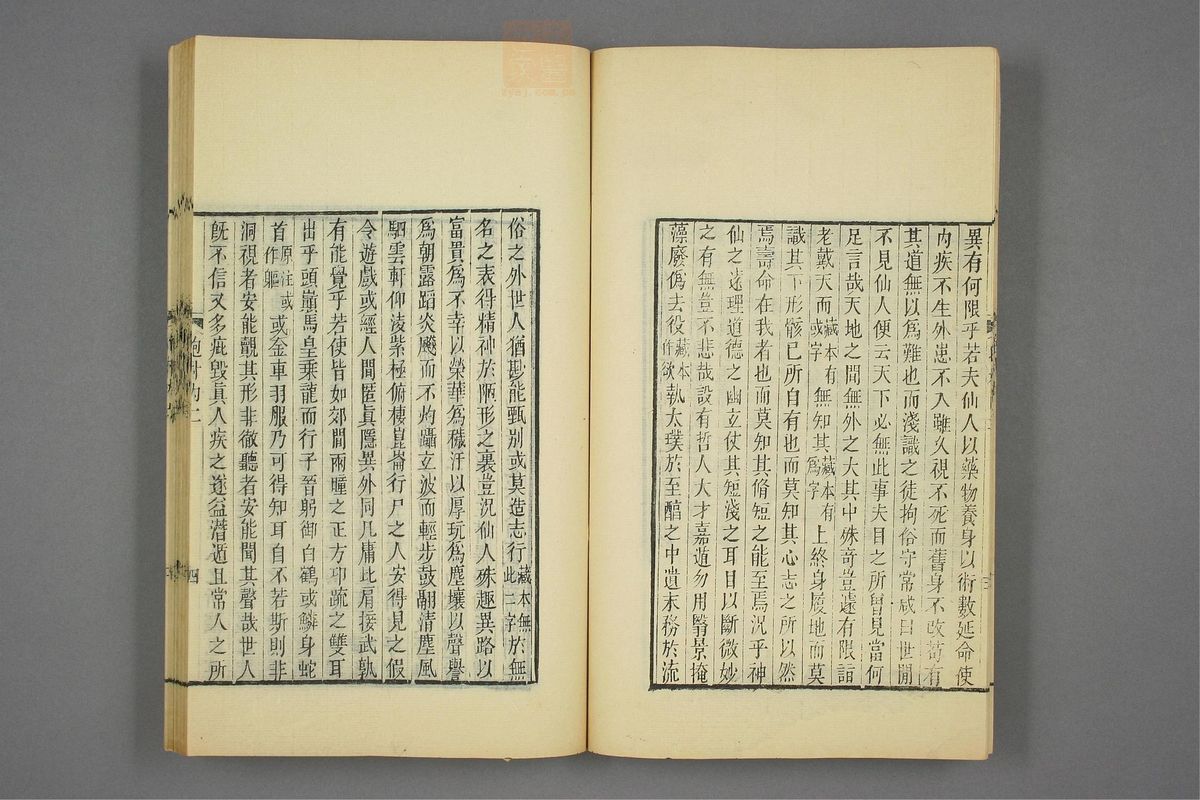 異有何限乎若夫仙人以藥物養身以術數延命使
内疾不生外患不入雖久視不死而舊身不改苟有
其道無以爲難也而淺識之徒拘俗守常咸曰世閒
不見仙人便云天下必無此事夫目之所曾見當何
足言哉天地之閒無外之大其中殊奇豈遽有限詣
老戴天而藏本有或字無知其藏本有爲字上終身履地而莫
識其下形骸已所自有也而莫知其心志之所以然
焉壽命在我者也而莫知其脩短之能至焉況乎神
仙之遠理道德之幽立仗其短淺之耳目以斷微妙
之有無豈不悲哉設有哲人大才嘉遁勿用翳景掩
藻廢僞去役藏本作欲執太璞於至醇之中遺末務於流
俗之外世人猶尠能甄别或莫造志行藏本無此二字於無
名之表得精神於陋形之裏豈況仙人殊趣異路以
富貴爲不幸以榮華爲穢汙以厚玩爲塵壤以聲譽
爲朝露蹈炎飈而不灼躡立波而輕步鼓翮清塵風
駟雲軒仰淩紫極俯棲崑崙行尸之人安得見之假
令遊戲或經人閒匿眞隱異外同凡庸比肩接武孰
有能覺乎若使皆如郊閒兩曈之正方卭疏之雙耳
出乎頭巔馬皇乘龍而行子晉躬御白鶴或鱗身蛇
首原注或作軀或金車羽服乃可得知耳自不若斯則非
洞視者安能覿其形非徹聽者安能聞其聲哉世人
旣不信又多疵毀眞人疾之遂益潛遁且常人之所
四